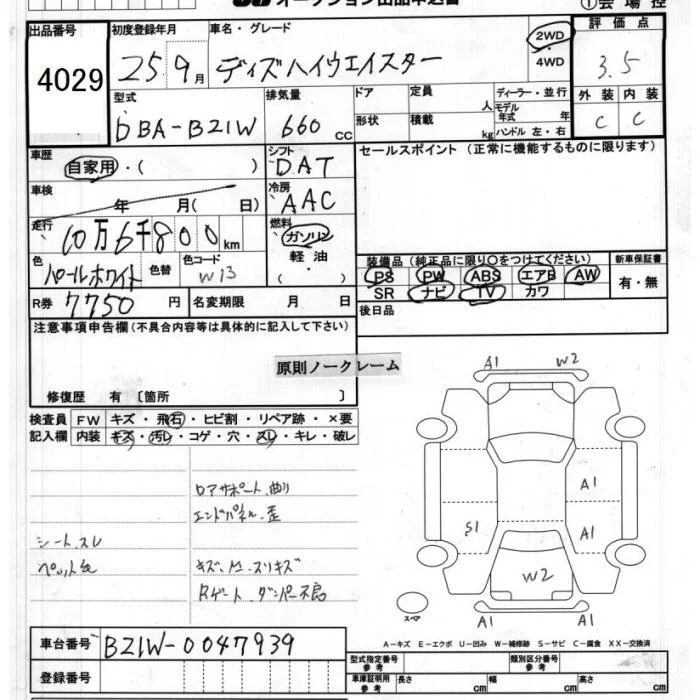 オークション出品申込書
①会場控
出品番号 初度登録年月 車名・グレード 2WD 評価点
4029 25 9月 デイズハイウエイスター ・4WD 3.5
型式 排気量 ドア 定員 人 ディーラー・並行 外装 内装
DBA-B21W 660cc 形状 積載 kg モデル年式 年 ハンドル 左・右 C C
車歴 シフト セールスポイント (正常に機能するものに限ります)
自家用・( ) DAT
車検 冷房
年 月( 日) AAC
走行 燃料
10万6千800km ガソリン
色 色替 色コード 軽油 装備品 (純正品に限り○をつけてください) 新車保証書
パールホワイト W13 ・( ) PS PW ABS エアB AW 有・無
R券 7750円 名変期限 月 日 SR ナビ TV カワ
注意事項申告欄(不具合内容等は具体的に記入して下さい) 後日品
原則ノークレーム
A1 W2
修復歴 有 〔箇所 〕
検査員 FW キズ・飛石・ヒビ割・リペア跡・×要
記入欄 内装 キズ・汚レ・コゲ・穴・スレ・キレ・破レ
A1
ロアサポート曲り
エンドパネル歪
S1 A1
シートスレ
キズ
W2
ダンパー不良
スペア A1 A1
A-キズ E-エクボ U-凹み W-補修跡 S-サビ C-腐食 XX-交換済
車台番号 B21W-0047939
型式指定番号 参考 類別区分番号 参考
登録番号 車庫証明用 参考 長さ cm 幅 cm 高さ cm